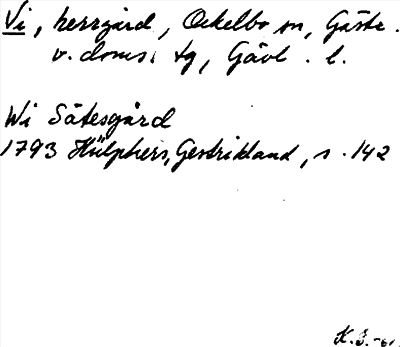 Vi, herrgård, Ockelbo sn, Gästr.
v. doms. tg, Gävl. l.
Wi Sätesgård
1793 Hülphers, Gestrikland, s. 142
K.B. -61